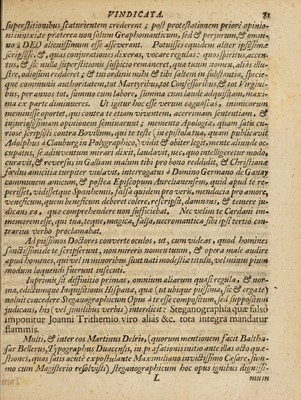 VINDICATA. 81
superstitionibus scaturientem crederent; post protestationem priori opinio-
ni innixi, te præterea non solum Gramomanticum, sed & perjurum, & omni-
no à DEO alienissimum esse asseverant. Potuisses equidem aliter ipsissima
scripsisse, &, quas conjurationes dixeras, vocare regulas: quos spiritus, accen-
tus, & sic nulla superstitionis suspicio remaneret, quæ tuum nomen, aliàs illu-
stre, odiosum redderet; & tui ordinis mihi & tibi saltem in substantia, specie-
que communis authoritatem, tot Martyribus, tot Confessoribus, & tot Virgini-
bus, per annos tot, summo cum labore, summa cum laude adquistam, maxi-
ma ex parte diminueres. Ut igitur hoc esse verum cognoscas, inimicorum
meminisse oportet, qui contra te etiam viventem, acerrimam sententiam, &
injuriosissimam opinionem seminarunt; memento Apologiæ, quam satis cu-
riosè scripsisti contra Bovillum, qui te teste (in epistola tua, quam publicavit
Adolphus à Glauburg in Polygraphico) vidit & obiter legit, mente aliunde oc-
cupatus, se adinventum mirari dixit, laudavit, nec, quo intelligeret modo,
curavit, & reversus in Galliam malum tibi pro bono reddidit, & Christianæ
fœdus amicitiæ turpiter violavit, interrogatus à Domino Germano de Ganay
communem amicum, & postea Episcopum Aurelianensem, quid apud te re-
perisset, vidissetque Spanhemii, falsa quidem pro veris, mendacia pro amore,
veneficum, quem beneficum deberet colere, rescripsit, damnans, & temere ju-
dicans ea, quæ comprehendere non sufficiebat. Nec velim te Cardani im-
memorem esse, qui tua, teque, magica, falsa, necromantica sibi ipsi tertio con-
trarius verbo proclamabat.
Ad piissimos Doctores converte oculos, ut, cum videas, quod homines
sanctissimi de te scripserunt, non mireris nomen tuum, & opera male audire
apud homines, qui vel in minoribus sunt nati modestia titulis, vel minus pium
modum loquendi fuerunt insecuti.
Inprimis, sit diffinitio primas, omnium aliarum quasi regula, & nor-
ma, edictumque Inquisitionis Hispanæ, quæ (ut ubique piissima, sic & ergà te)
noluit concedere Steganographicum Opus à te esse compositum, sed suppositum
judicans, his (vel similibus verbis) interdicit: Steganographia quæ falso
imponitur Joanni Trithemio viro aliàs &c. tota integra mandatur
flammis.
Multi, & inter eos Martinus Delrio, (quorum mentionem facit Baltha-
sar Bellerus, Typographus Duacensis, in præfationis initio ante illas octo quæ-
stiones, quas satis acutè expostulante Maximiliano invictissimo Cæsare, sum-
mo cum Magisterio resolvisti) steganographicum hoc opus ignibus dignissi-
L mum